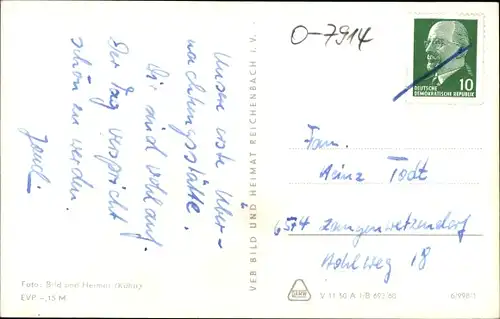 O-7914
DEUTSCHE
DEMOKRATISCHE REPUBLIK
10
Unsere erste Über-
nachtungsstätte.
Wir sind wohlauf.
Der Tag verspricht
schön zu werden.
VEB BILD UND HEIMAT REICHENBACH I. V.
Fam.
Heinz Todt
6574 Langenwetzendorf
Hohlweg 18
Foto: Bild und Heimat
EVP –,15 M
V 11 50 A 1-B 692/60